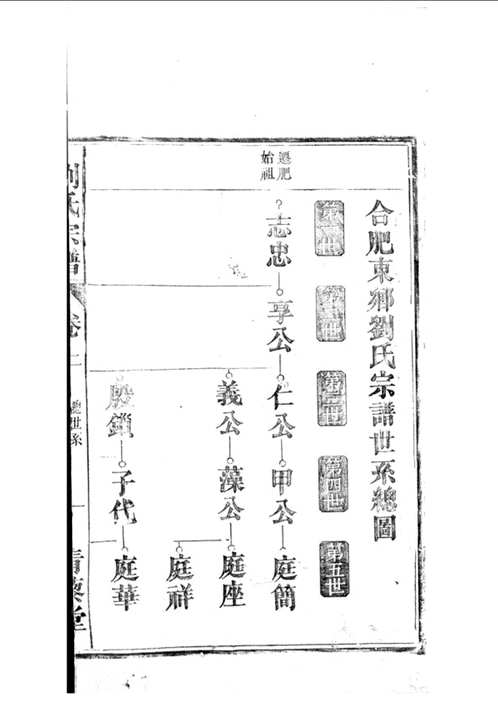 合肥東鄉劉氏宗譜世系總圖
第一世
第二世
第三世
第四世
第五世
遷肥
始祖
志忠
享公
仁公
甲公
庭簡
義公
藻公
庭座
庭祥
殿鎖
子代
庭華
劉氏宗譜
卷
總世系
青藜堂